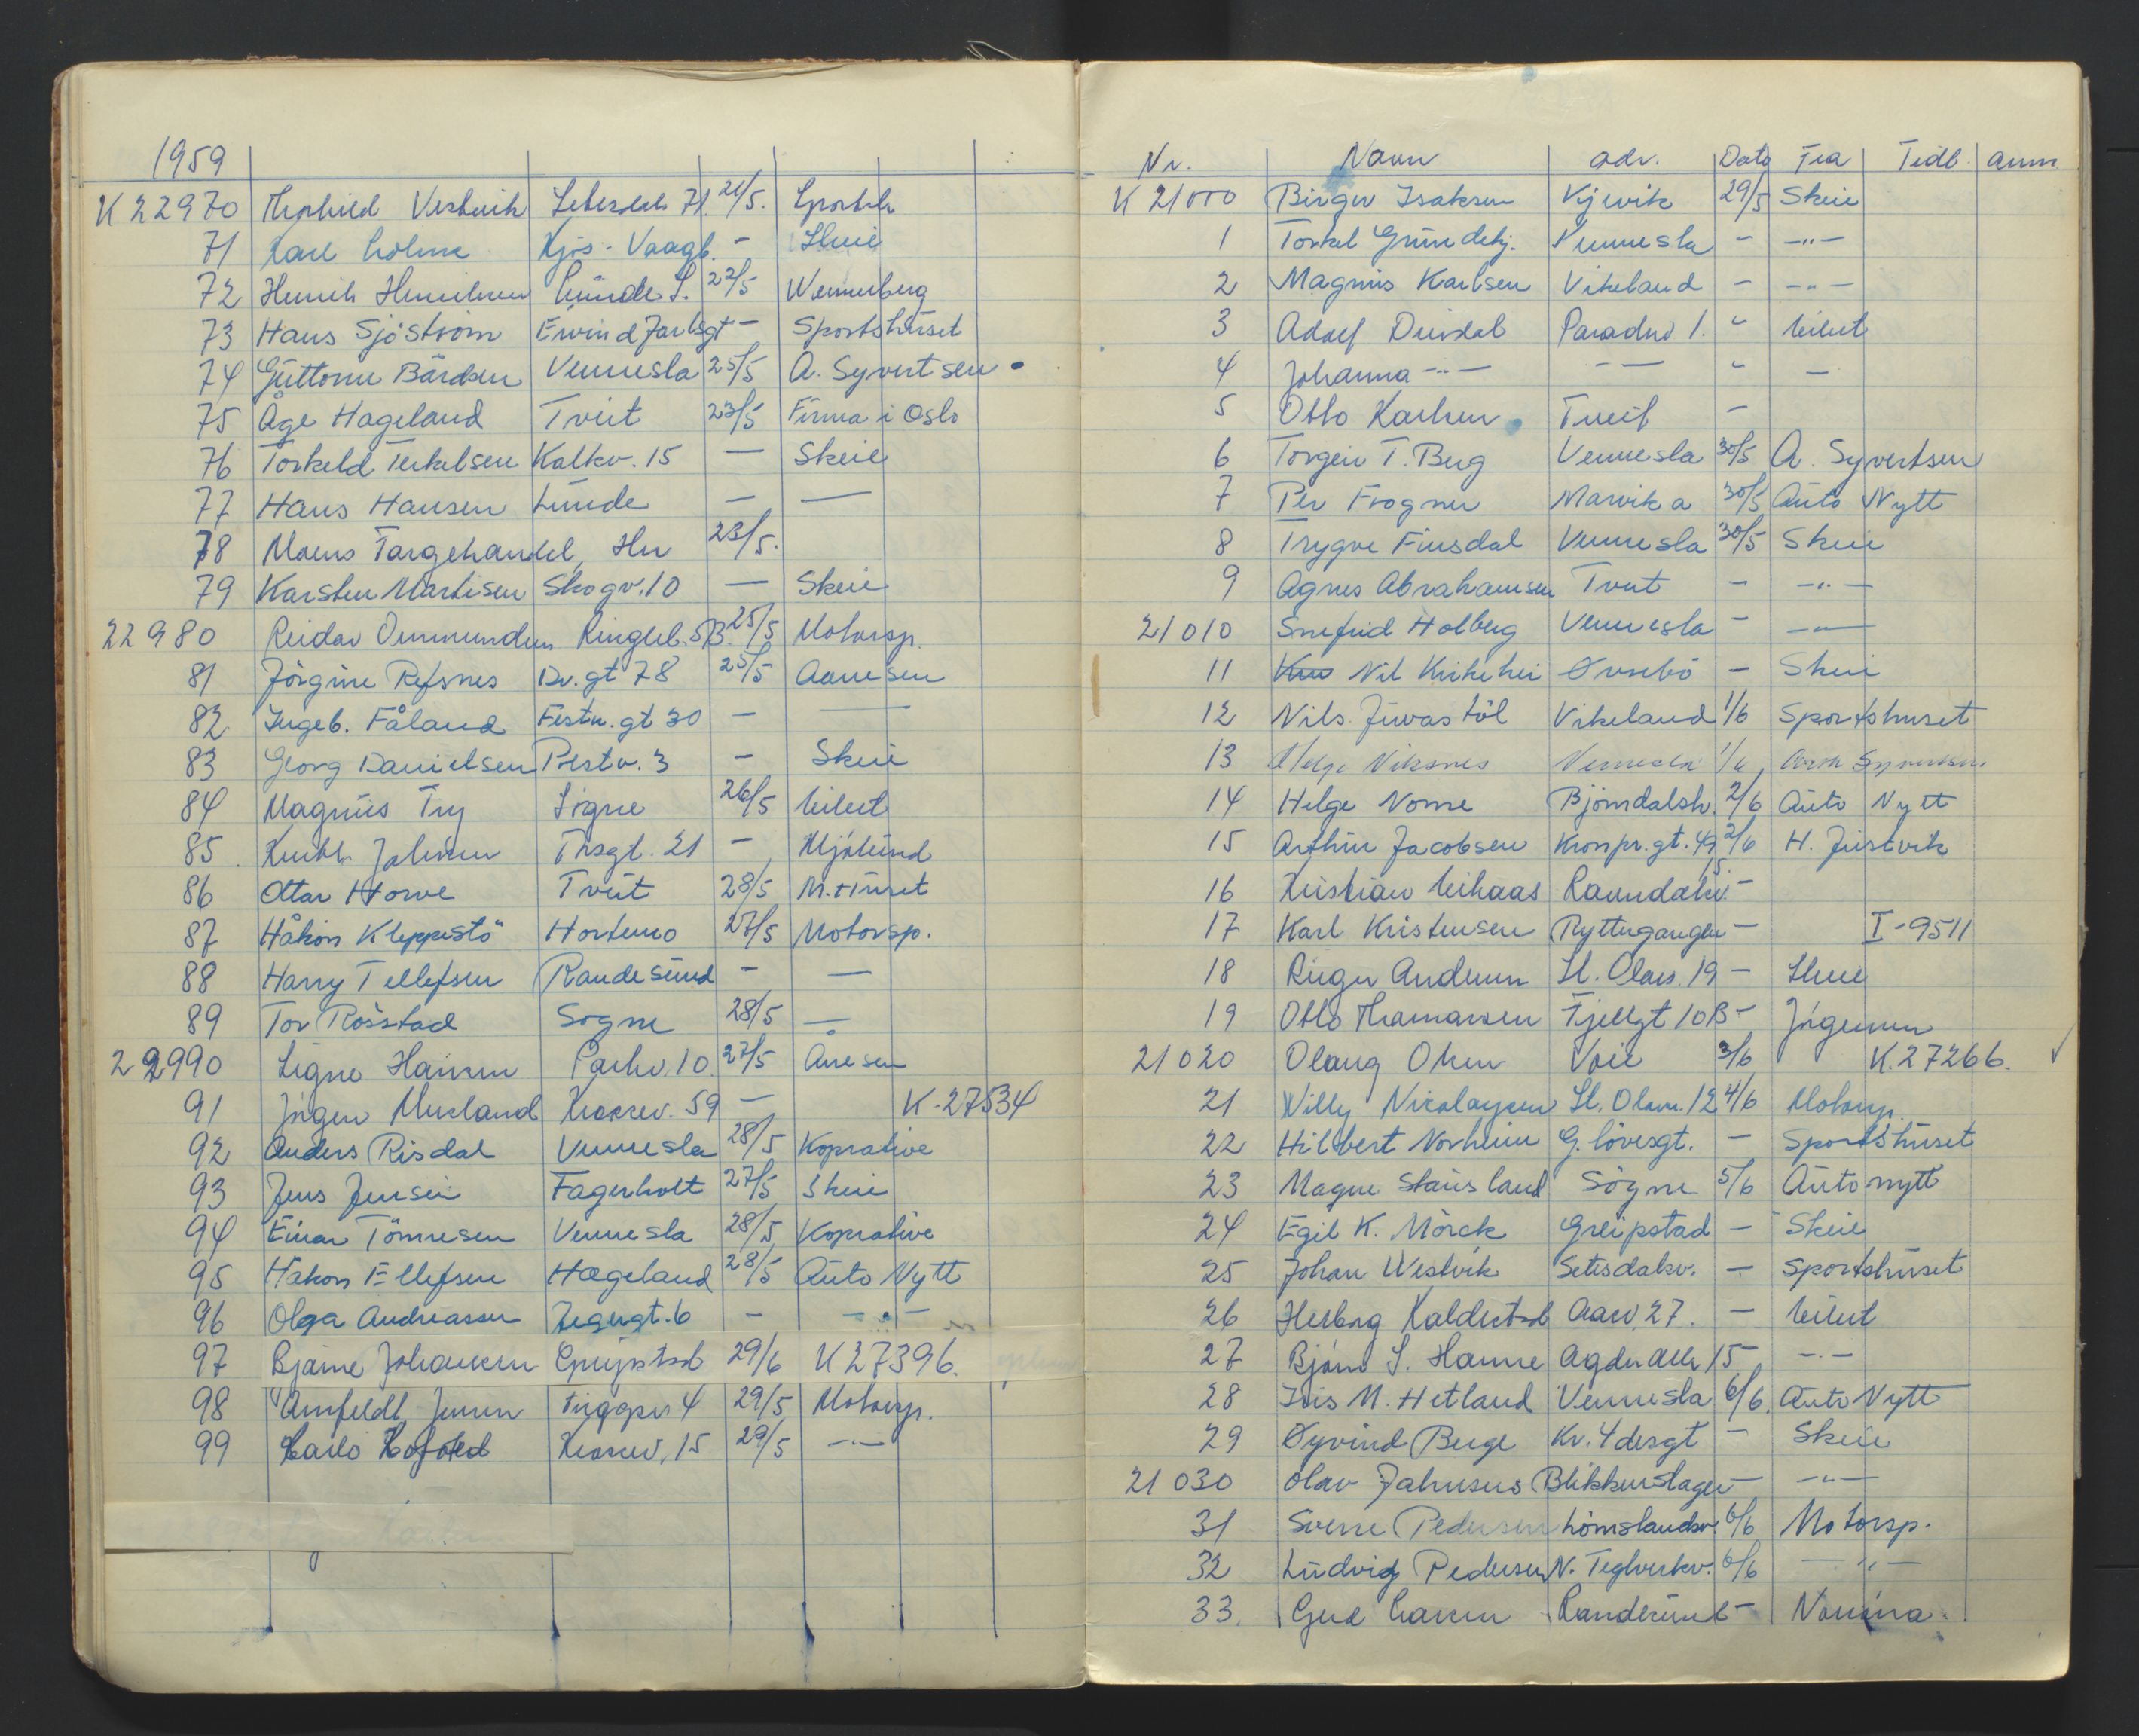 1959
K 22970 Thorhild Vestvik Setesdals 71. 21/5. Sportsh
71 Karl Holme Kjos - Vaagb. - Skeie
72 Henrik Henriksen Lunde S. 22/5 Wennerberg
73 Hans Sjöström Eivind Jarlsgt - Sportshuset
74 Guttorm Bårdsen Vennesla 25/5 A. Syvertsen
75 Åge Hageland Tveit 23/5 Firma i Oslo
76 Torkeld Terkelsen Kalkv. 15 — Skeie
77 Hans Hansen Lunde — —
78 Moens Fargehandel, Her 23/5.
79 Karsten Martisen Skogv. 10 — Skeie
22980 Reidar Ommundsen Ringleb. 5B. 25/5 Motorsp.
81 Jörgine Refsnes Dr. gt 78 25/5 Aanesen
82 Ingeb. Fåland Festn. gt 30 — —
83 Georg Danielsen Prestv. 3 — Skeie
84 Magnus Try Sögne 26/5
85 Johnsen Thsgt. 21 - Mjålund
86 Ottar Horve Tveit 28/5 M. Huset
87 Håkon Kleppestö Hortemo 27/5 Motorsp.
88 Harry Tellefsen Randesund - —
89 Tor Rosstad Sogne 28/5 —
22990 Signe Hansen Parkv. 10. 27/5 Ånesen
91 Jörgen Kossev. 59 — K-27534
92 Anders Risdal Vennesla 28/5 Koprative
93 Jens Jensen Fagerholt 27/5 Skeie
94 Einar Tönnesen Vennesla 28/5 Koprative
95 Håkon Ellefsen Hægeland 28/5 Auto Nytt
96 Olga Andreassen Jegergt. 6 - -"-
97 Bjarne Johansen Greipstad 29/6 K 27396.
98 Arnfeldt Jensen 4 29/5 Motorsp.
99 Carlo Kofoed Kossev. 15 29/5 -"-
Nr. Navn adr. Dato Fra Tedl. anm
K 21000 Birger Isaksen Kjevik 29/5 Skeie
1 Torkel Grundetj. Vennesla - -"-
2 Magnus Karlsen Vikeland - -"-
3 Adolf Duisdal Paradisv 1. "
4 Johanna -"- — " —
5 Otto Karlsen Tveit —
6 Torgeir T. Berg Vennesla 30/5 A. Syvertsen
7 Per Frogner Marvik a 30/5 Auto Nytt
8 Trygve Finsdal Vennesla 30/5 Skeie
9 Agnes Abrahamsen Tveit - -"-
21010 Snefrid Holberg Vennesla - -"-
11 Nil Kirkehei Øvrebö - Skeie
12 Nils Juvastöl Vikeland 1/6 Sportshuset
13 Helge Viksnes Vennesla 1/6
14 Helge Nome Bjørndalsh. 2/6 Auto Nytt
15 Arthur Jacobsen Kronpr. gt. 49 2/6 H. Justvik
16 Kristian Raundalsv. 15 -
17 Karl Kristensen Ryttergangen - I-9511
18 Birger Andersen St. Olavs. 19 - Skeie
19 Otto Thomassen Fjellgt 10B - Jörgensen
21020 Olaug Olsen Voie 3/6 K. 27266.
21 Willy Nicolaysen St. Olavs. 12 4/6 Motorsp.
22 Hilbert Norheim G. lövesgt. - Sportshuset
23 Magne Stausland Sögne 5/6 Auto nytt
24 Egil K. Mörck Greipstad - Skeie
25 Johan Westvik Setesdalsv. - Sportshuset
26 Herborg Kalderstad Aasv. 27. —
27 Bjørn S. Hanne Agder alle 15 -"-
28 Iris M. Hetland Vennesla 6/6. Auto Nytt
29 Øyvind Berge Kr. 4 desgt - Skeie
21030 Olav Jahnsens Blikkenslager - -"-
31 Sverre Pedersen Lömslandsv. 6/6 Motorsp.
32 Ludvig Pedersen N. Teglverksv. 6/6 — " —
33. Gerd Larsen Randesund - Nomina